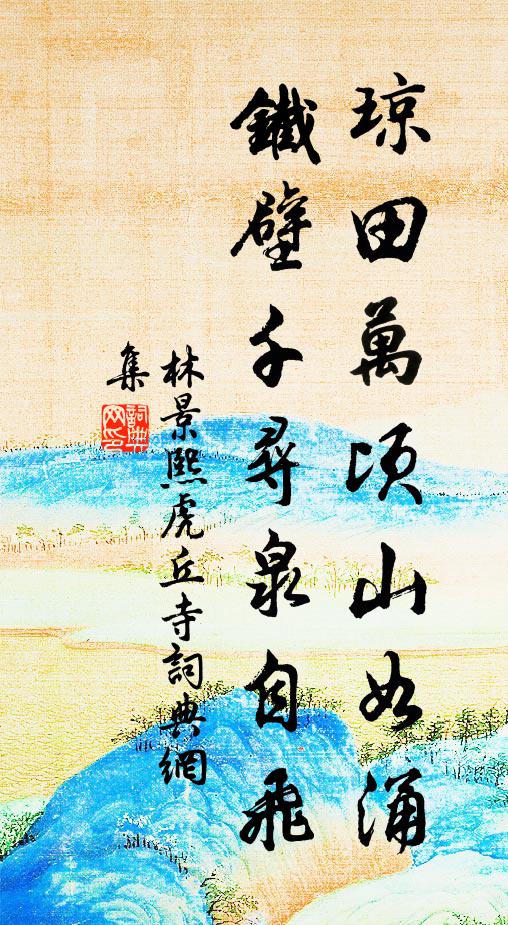 琼田萬頃山如涌
鐵壁千尋泉自飛
林景熙虎丘寺詞典網
集
詞典网印